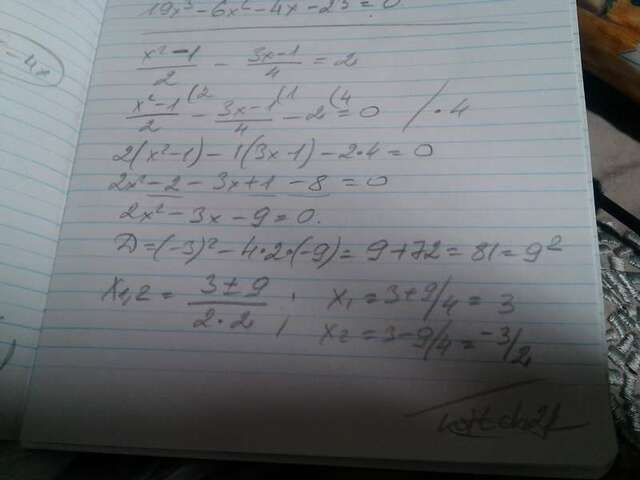 19x³ - 6x² - 4x - 23 = 0
- 4x
(x² - 1)/2 - (3x - 1)/4 = 2
(x² - 1)/2 (2 - (3x - 1)/4 (1 - 2 (4 = 0 / · 4
2(x² - 1) - 1(3x - 1) - 2·4 = 0
2x² - 2 - 3x + 1 - 8 = 0
2x² - 3x - 9 = 0.
D = (-3)² - 4·2·(-9) = 9 + 72 = 81 = 9²
X₁,₂ = (3 ± 9)/(2·2) , x₁ = 3+9/4 = 3
x₂ = 3-9/4 = -3/2